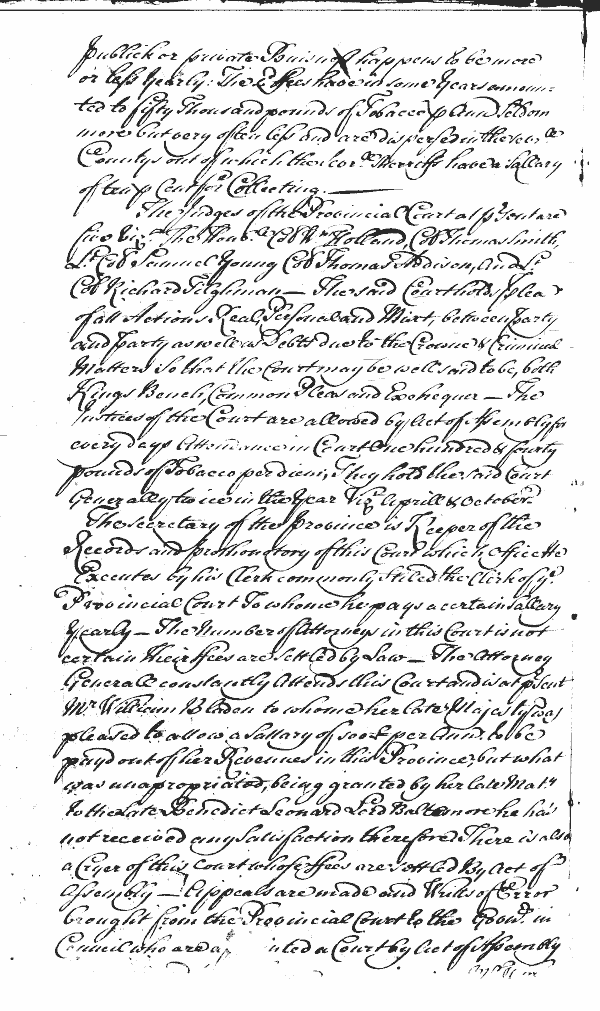 publick or private Business happens to be more
or less Yearly: The Effees have in some Years amoun=
ted to fifty Thousand pounds of Tobacco p Ann Seldom
more but very often less and are dispersed in the sev.ll
Countys out of which the sev.ll Sherriffs have a Sallary
of ten p Cent for Collecting.
The Judges of the Provincial Court at p'sent are
five Viz.t The Hon.ble Coll W.m Holland, Coll Thomas Smith,
L.t Coll Samuel Young Coll Thomas Addison, and L.t
Coll Richard Tilghman — The said Court holds plea
of all Actions Real Personal and Mixt, between party
and Party as well as Debts due to the Crowne & Criminal
Matters So that the Court may be well said to be, both
Kings Bench, Common Pleas and Exchequer — The
Justices of the Court are allowed by Act of Assembly for
every days Attendance in Court One hundred & fourty
pounds of Tobacco per diem; They hold the said Court
Generally twice in the Year Viz.t Aprill & October.
The Secretary of the Province is Keeper of the
Records and prothonotory of this Court which office He
Executes by his Clerk commonly Stiled the Clerk of y.e
Provincial Court To whome he pays a certain Sallary
Yearly — The Number of Attorneys in this Court is not
certain their ffees are settled by Law — The Attorney
Generall constantly Attends this Court and is at p'sent
M.r William Bladen to whome her late Majesty was
pleased to allow a Sallary of 100£ per Ann. to be
payd out of her Revenues in this Province; but what
was unapropriated, being granted by her late Mat.y
to the Late Benedict Leonard Lord Baltemore he has
not received any Satisfaction therefore There is also
a Cryer of this Court whose ffees are settled By Act of
Assembly — Appeals are made and Writts of Error
brought from the Provincial Court to the Gov.r in
Council who are a nted a Court by Act of Assembly